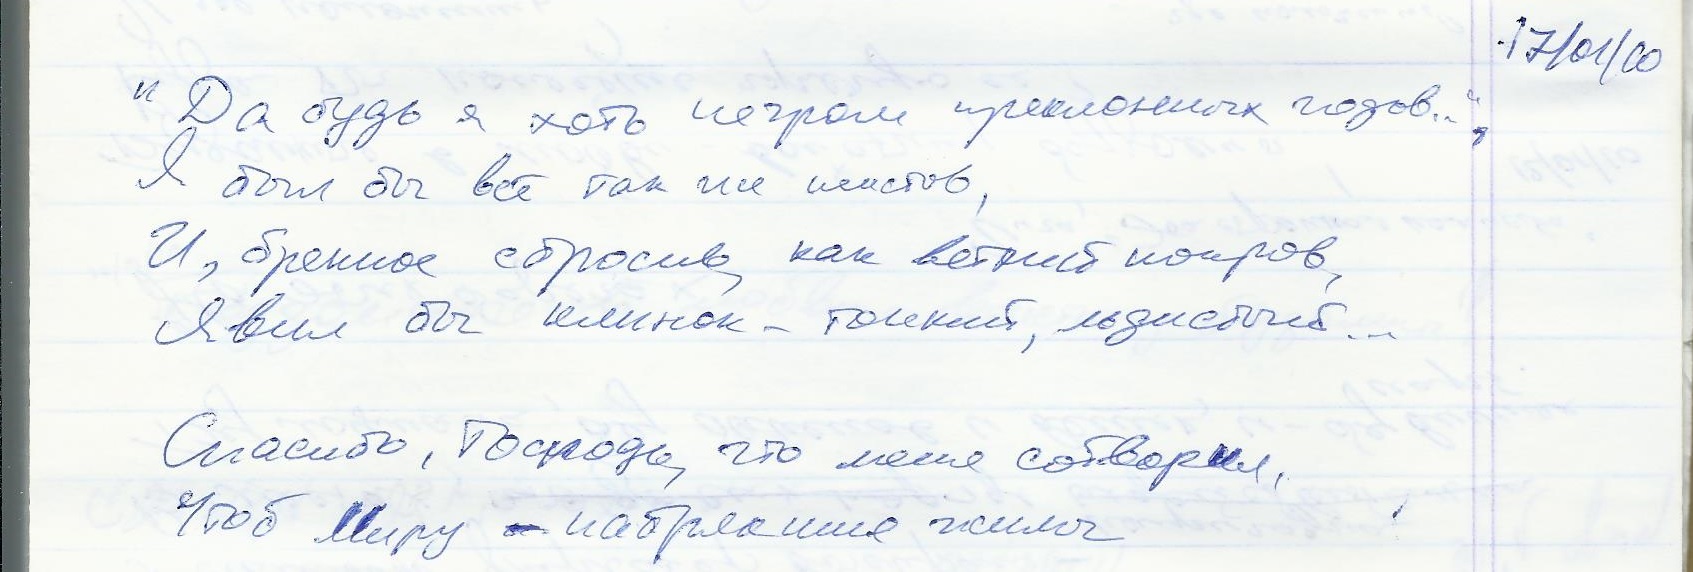 17/01/00
"Да будь я хоть негром преклонных годов...",
Я был бы всё так же неистов,
И, бренное сбросив, как ветхий покров,
Явил бы клинок – тонкий, льдистый...
Спасибо, Господь, что меня сотворил,
Чтоб Миру – набрякшие жилы